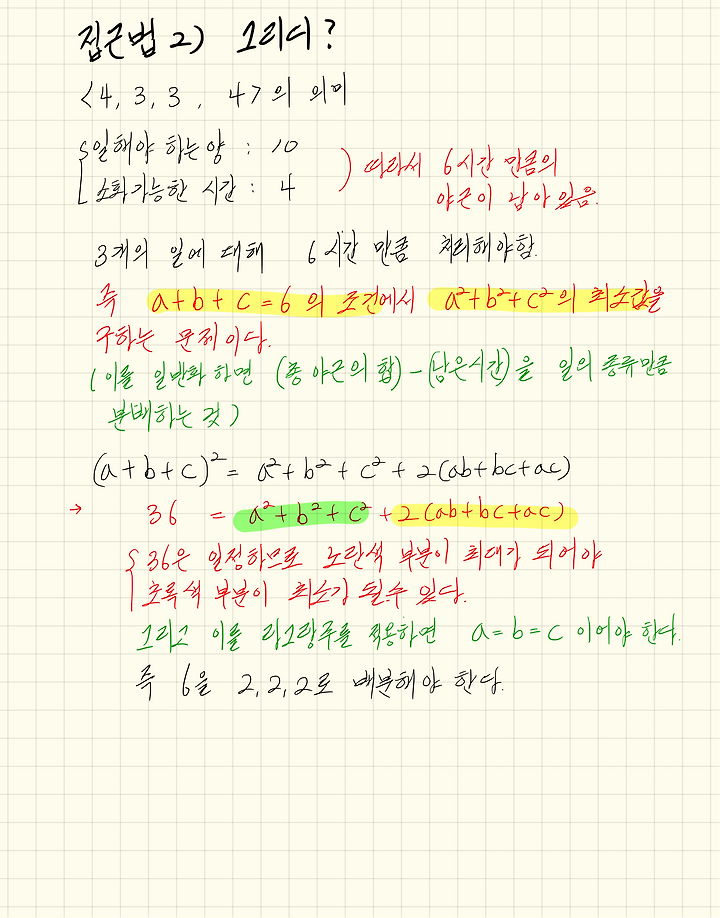 접근법 2) 그리디?
<4, 3, 3 , 4>의 의미
일해야 하는양 : 10
소화가능한 시간 : 4
) 따라서 6시간 만큼의
야근이 남아 있음.
3개의 일에 대해 6시간 만큼 처리해야함.
즉 a+b+c=6의 조건에서 a²+b²+c²의 최소값을
구하는 문제이다.
(이를 일반화 하면 (총 야근의 합)-(남은시간)을 일의 종류만큼
분배하는 것)
(a+b+c)²= a²+b²+c²+2(ab+bc+ac)
→ 36 = a²+b²+c²+2(ab+bc+ac)
36은 일정하므로 노란색 부분이 최대가 되어야
초록색 부분이 최소가 될수 있다.
그리고 이를 라그랑주를 적용하면 a=b=c 이어야 한다.
즉 6을 2,2,2로 배분해야 한다.